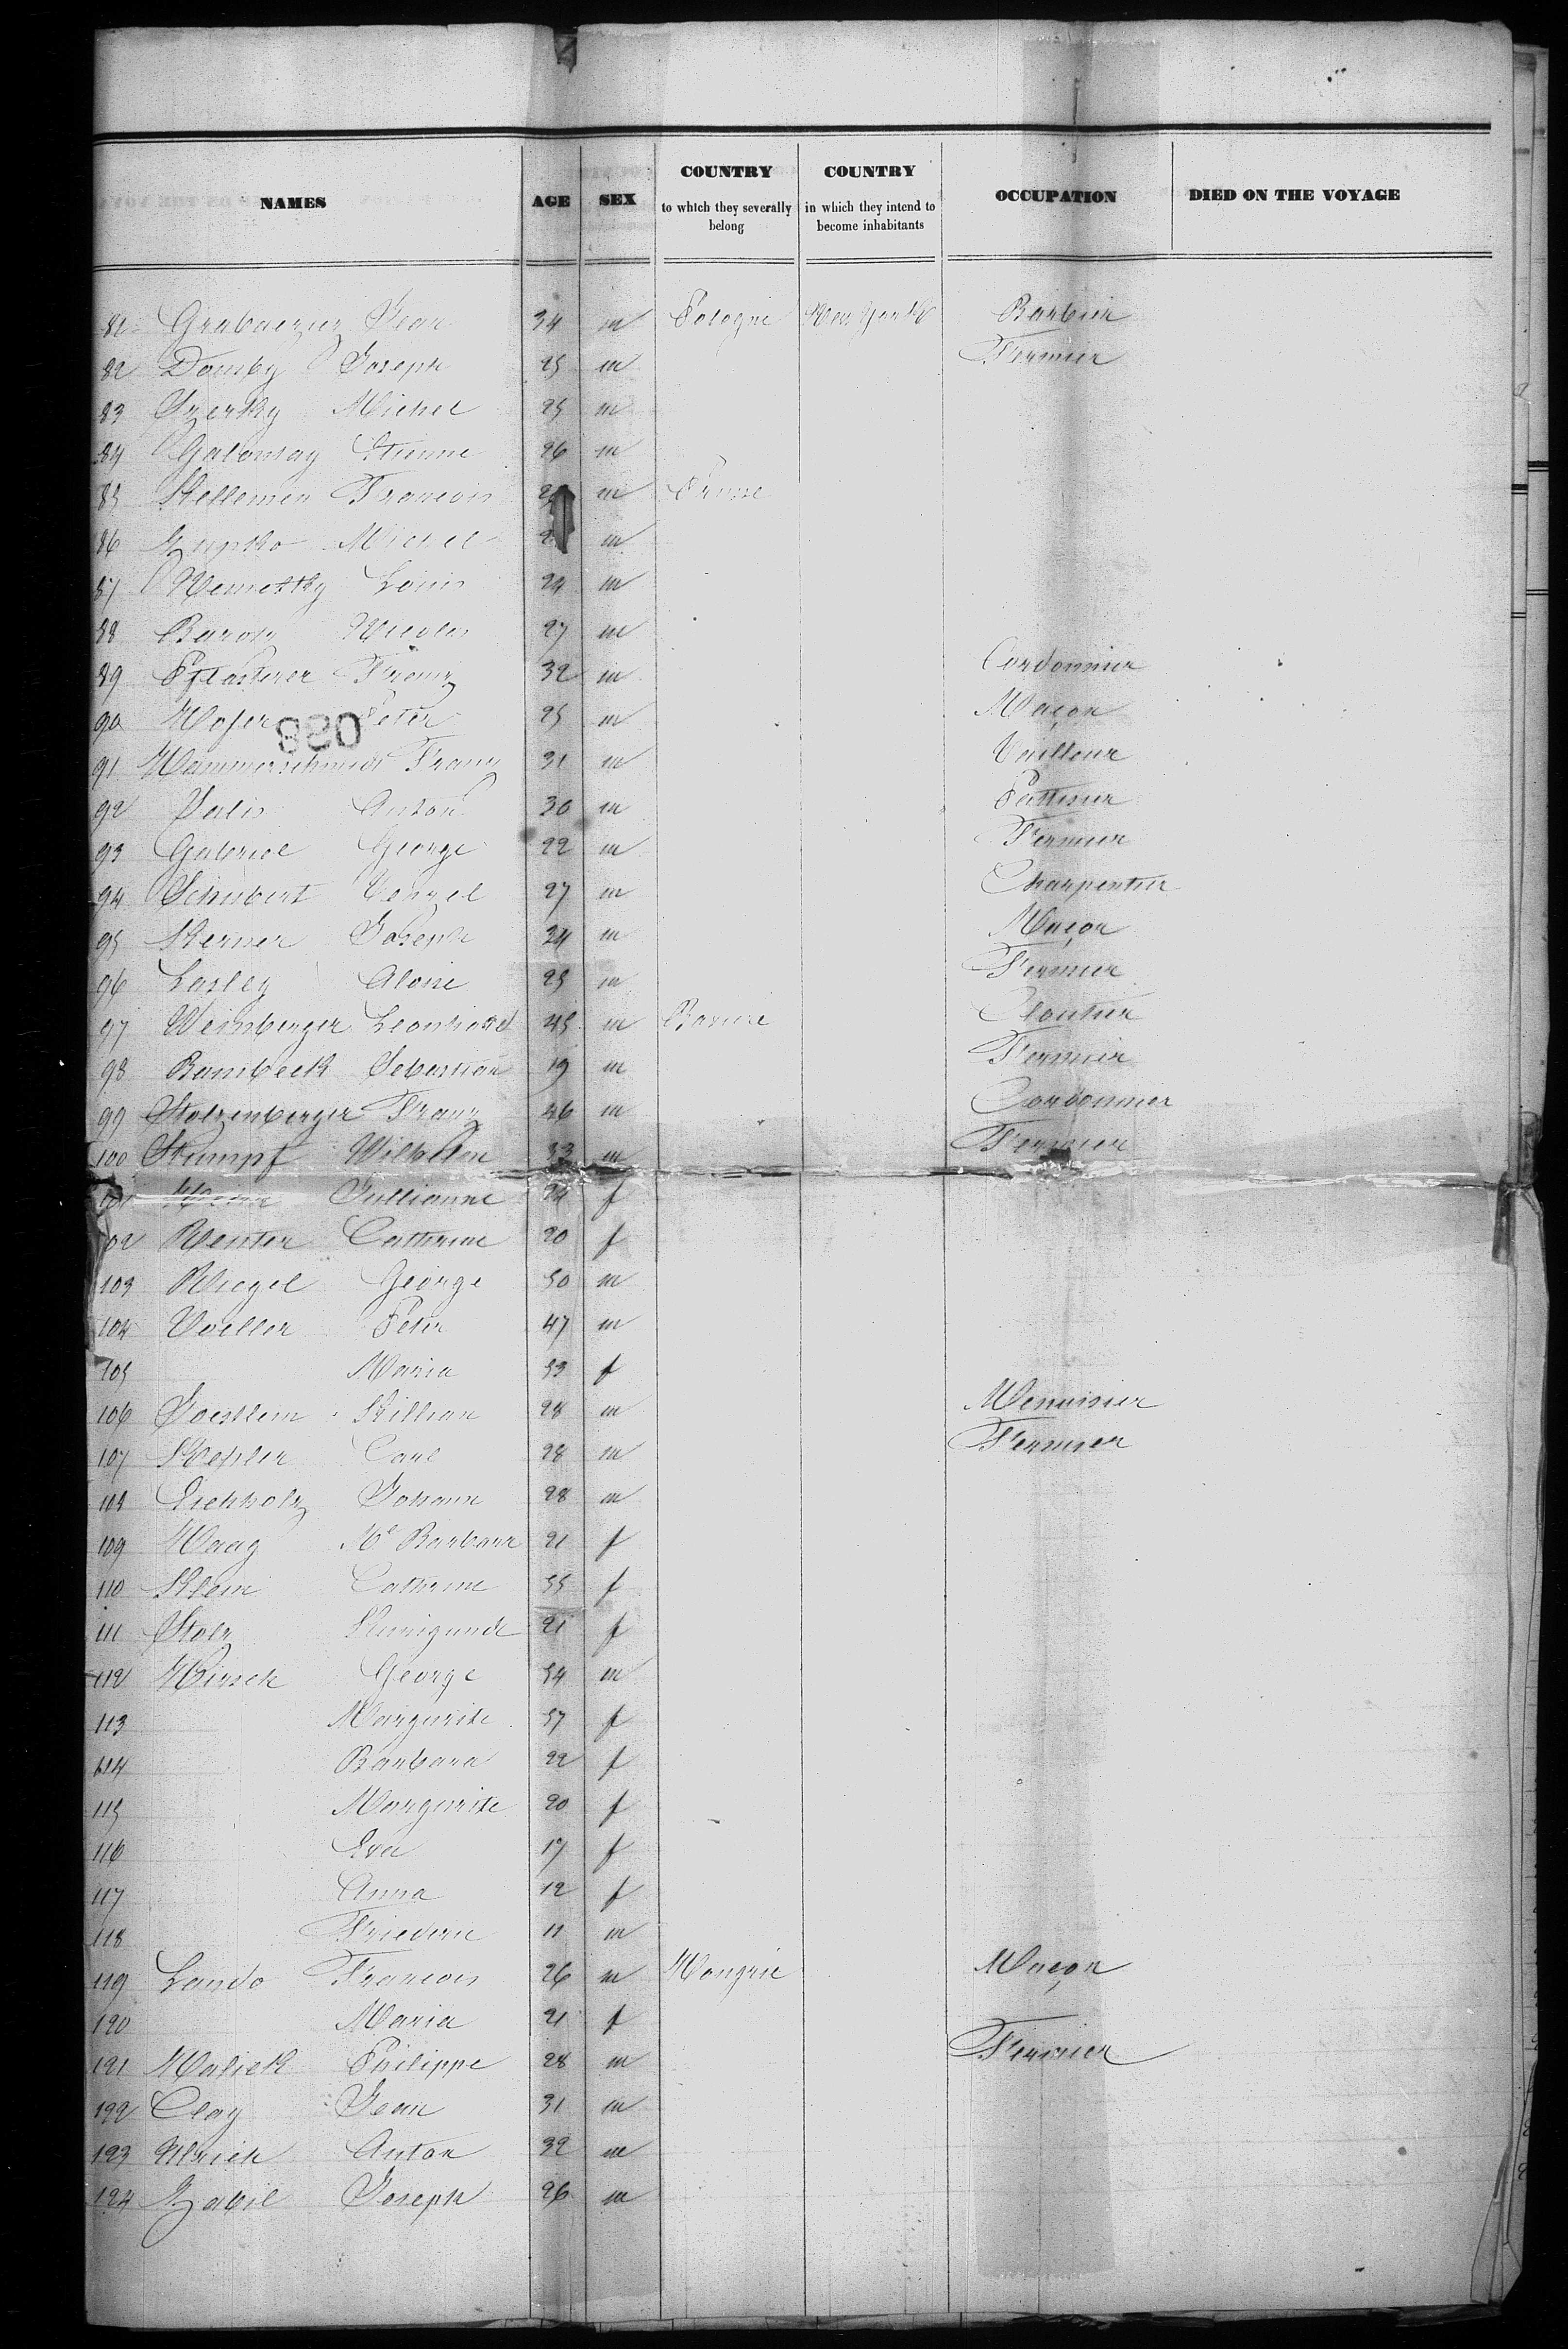 NAMES AGE SEX COUNTRY to which they severally belong COUNTRY in which they intend to become inhabitants OCCUPATION DIED ON THE VOYAGE
81 Jean 34 m Pologne New York Barbier
82 Domby Joseph 25 m Fermier
83 Szerky Michel 25 m
84 Galonsay Etienne 26 m
85 Kellemen Francois m Prusse
86 Zupko Michel m
87 Nemetky Louis 24 m
88 Baron Nicolas 27 m
89 Pflasterer Franz 32 m Cordonnier
90 Hofer Peter 25 m Maçon
080
91 Hammerschmidt Franz 31 m Tailleur
92 Anton 30 m
93 Gabriel George 22 m Fermier
94 Schubert Venzel 27 m Charpentier
95 Kerner Joseph 34 m Maçon
96 Lasley Aloise 25 m Fermier
97 Weinberger Leonhard 45 m Baviere Cloutier
98 Rambeck Sebastian 19 m Fermier
99 Stolzenberger Franz 46 m Cordonnier
100 Stumpf Wilhelm 33 m Fermier
101 Jullianne 24 f
102 Reuter Catherine 20 f
103 Riegel George 50 m
104 Voeller Peter 47 m
105 Maria 53 f
106 Joestlein Killian 28 m Menuisier
107 Kepler Carl 28 m Fermier
108 Eichholz Johann 28 m
109 Haag Me Barbara 21 f
110 Klein Catherine 55 f
111 Stolz Kunigunde 21 f
112 Hirsch George 54 m
113 Margurite 57 f
114 Barbara 22 f
115 Margurite 20 f
116 Eva 17 f
117 Anna 12 f
118 Friederic 11 m
119 Lando Francois 26 m Hongrie Maçon
120 Maria 21 f
121 Malick Philippe 28 m Fermier
122 Clay Jean 31 m
123 Ulrich Anton 32 m
124 Zabil Joseph 26 m